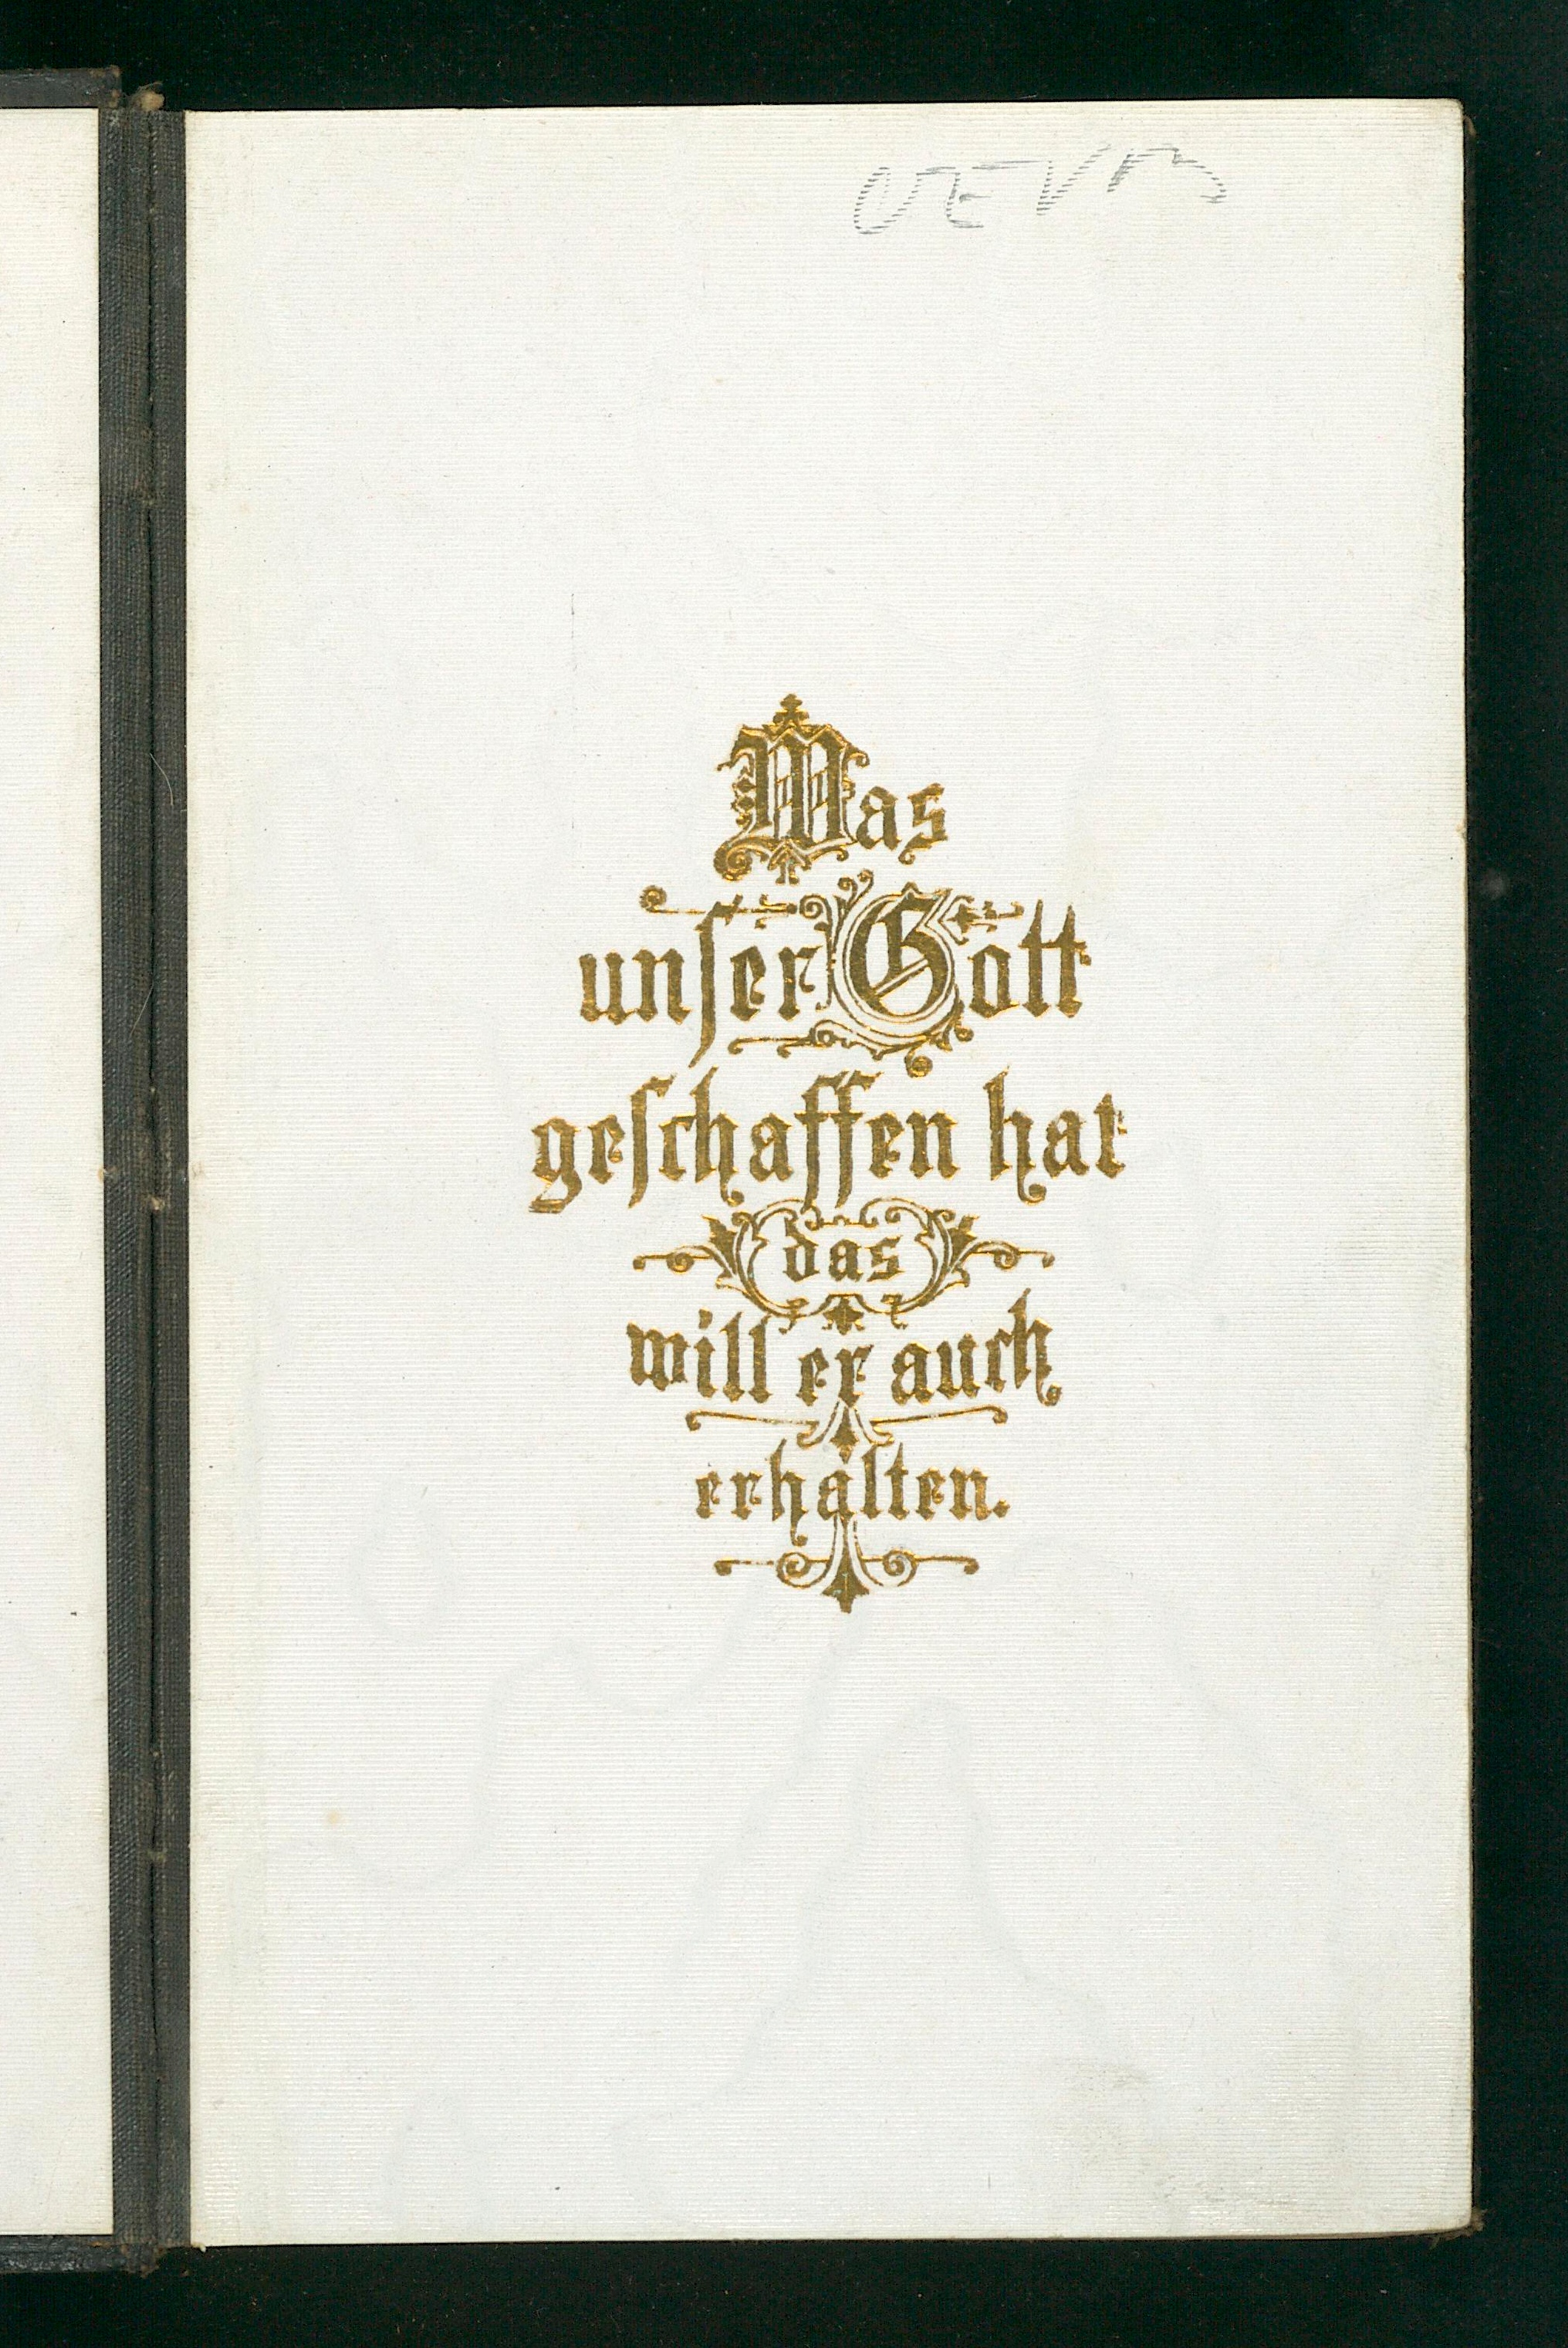 Was
unſer Gott
geſchaffen hat
das
will er auch
erhalten.